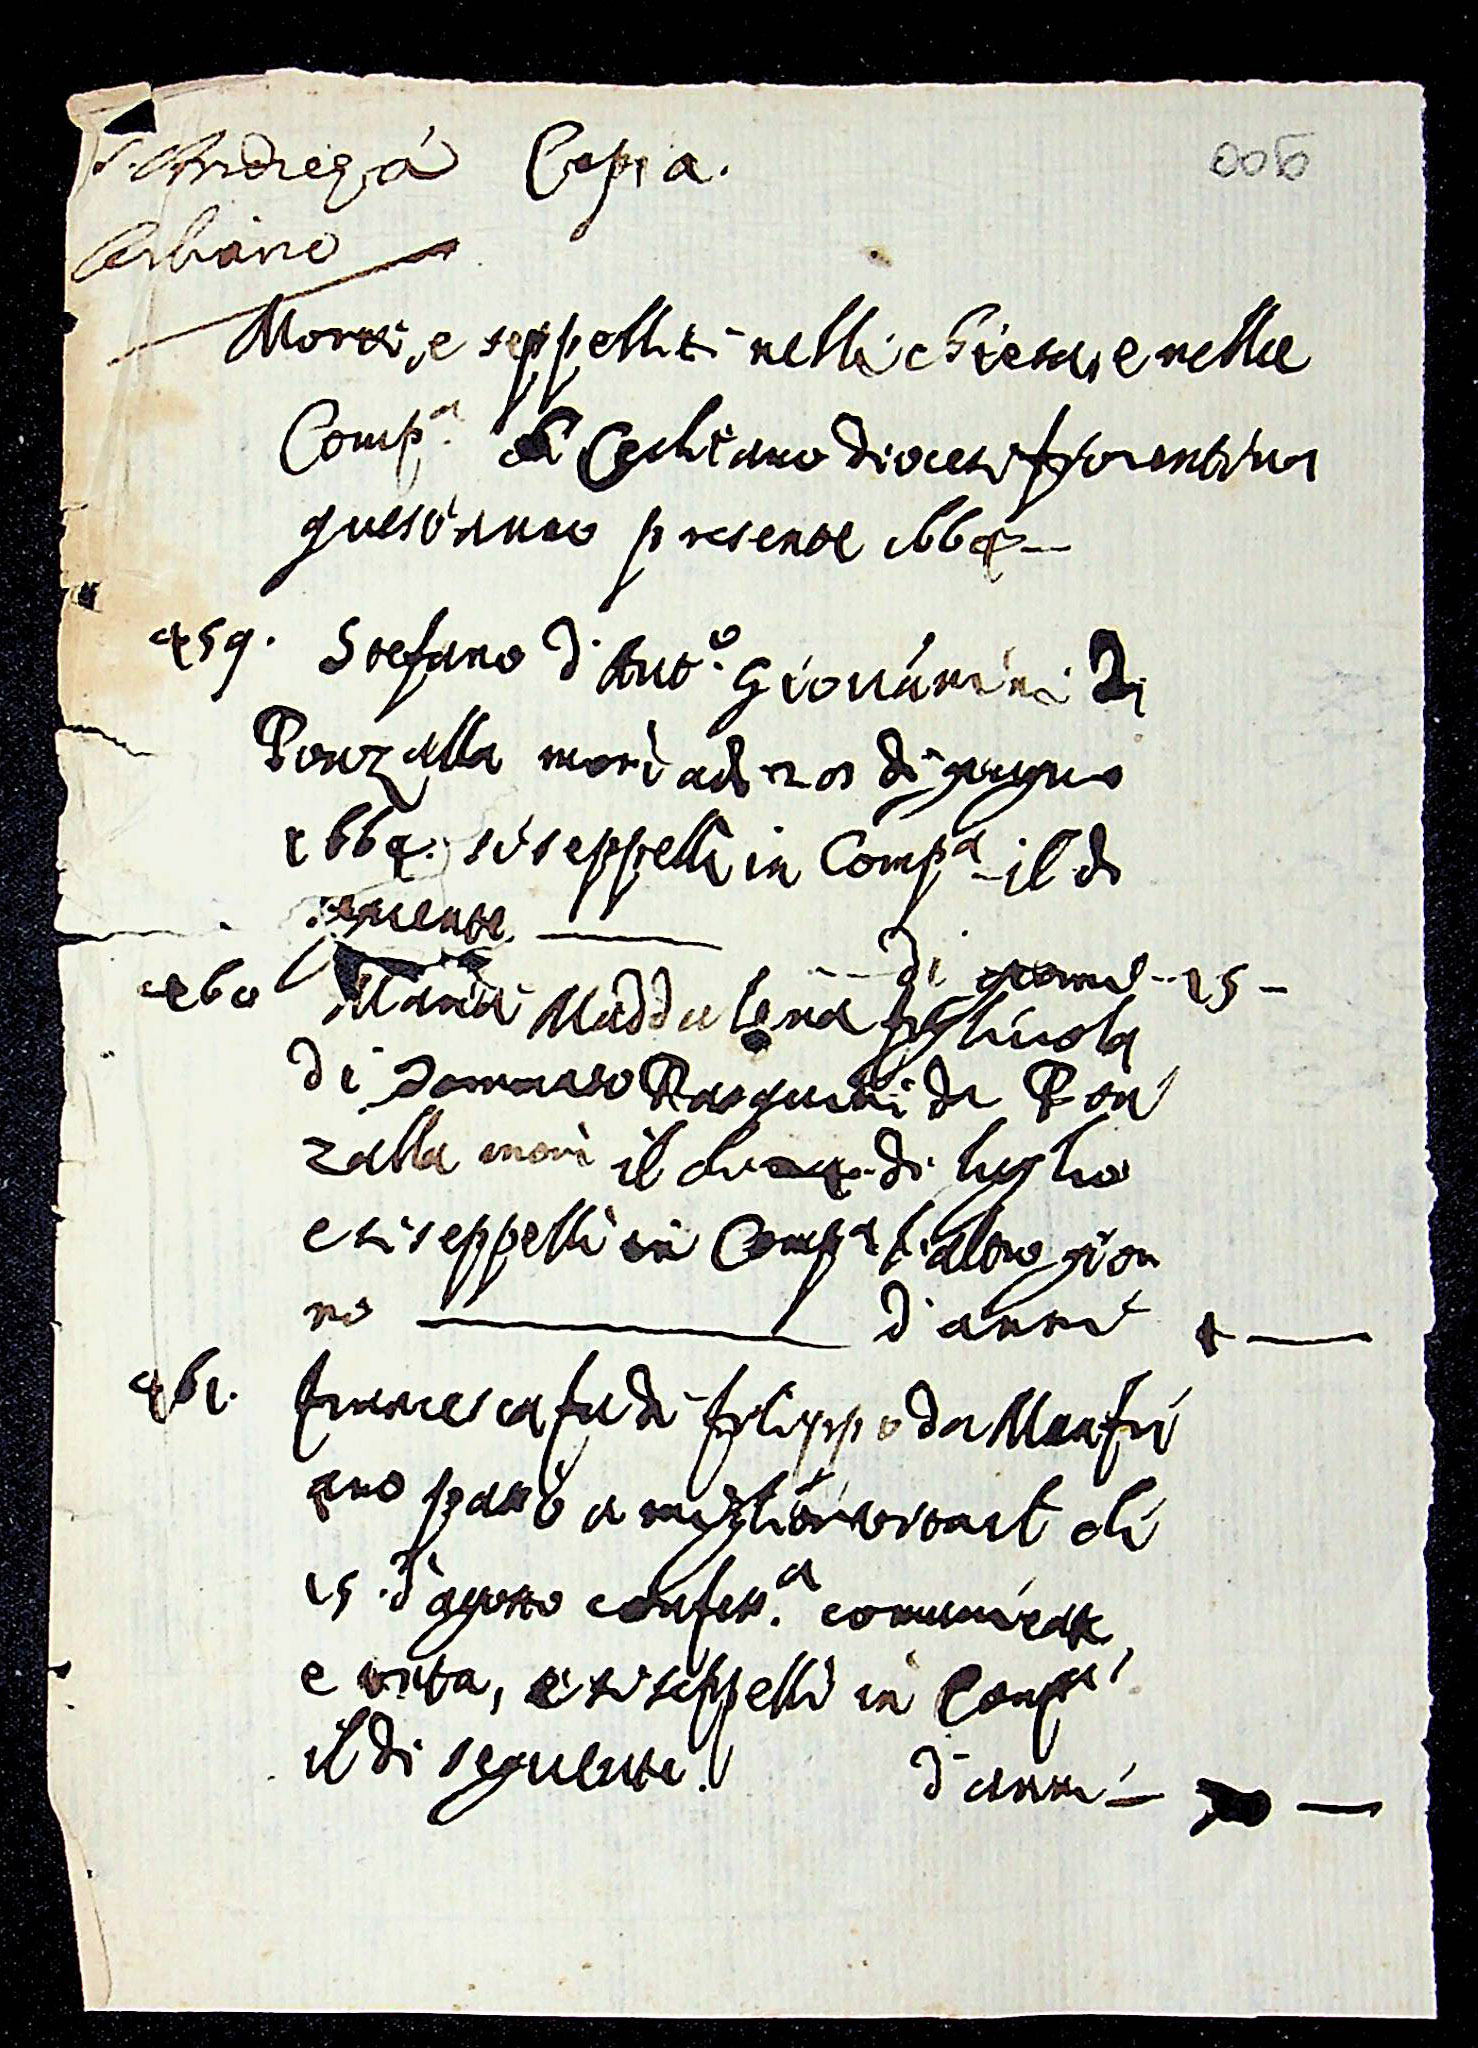 S. Andrea a Copia. 006
Cerliano
Morti, e seppelliti nella chiesa, e nella
Comp.a di Cerliano diocesi fiorentina
quest'anno presente 1664 —
459. Stefano d'Ant.o Giovannini di
Ponzalla morì adì 20 di giugno
1664. si seppellì in Comp.a il dì
seguente. —
di giorni 15 —
460 Maria Maddalena figliuola
di Tommaso Pasquini da Pon
zalla morì il dì 4 di luglio
e si seppellì in Comp.a l'altro gior
no — d'anni —
461. francesca fu di filippo da
ano passò a miglior vita il dì
15 d'agosto confess.a comunicata
e unta, e si seppellì in Comp.a
il dì seguente. d'anni —